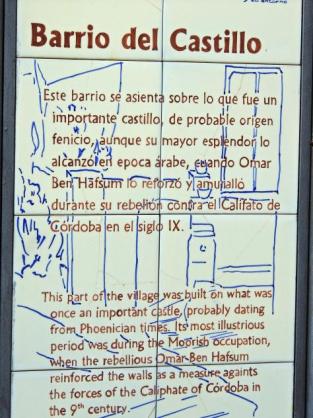 Barrio del Castillo
Este barrio se asienta sobre lo que fue un
importante castillo, de probable origen
fenicio, aunque su mayor esplendor lo
alcanzó en epoca árabe, cuando Omar
Ben Hafsum lo reforzó y amuralló
durante su rebelión contra el Califato de
Córdoba en el siglo IX.
This part of the village was built on what was
once an important castle, probably dating
from Phoenician times. Its most illustrious
period was during the Moorish occupation,
when the rebellious Omar Ben Hafsum
reinforced the walls as a measure againts
the forces of the Caliphate of Córdoba in
the 9th century.